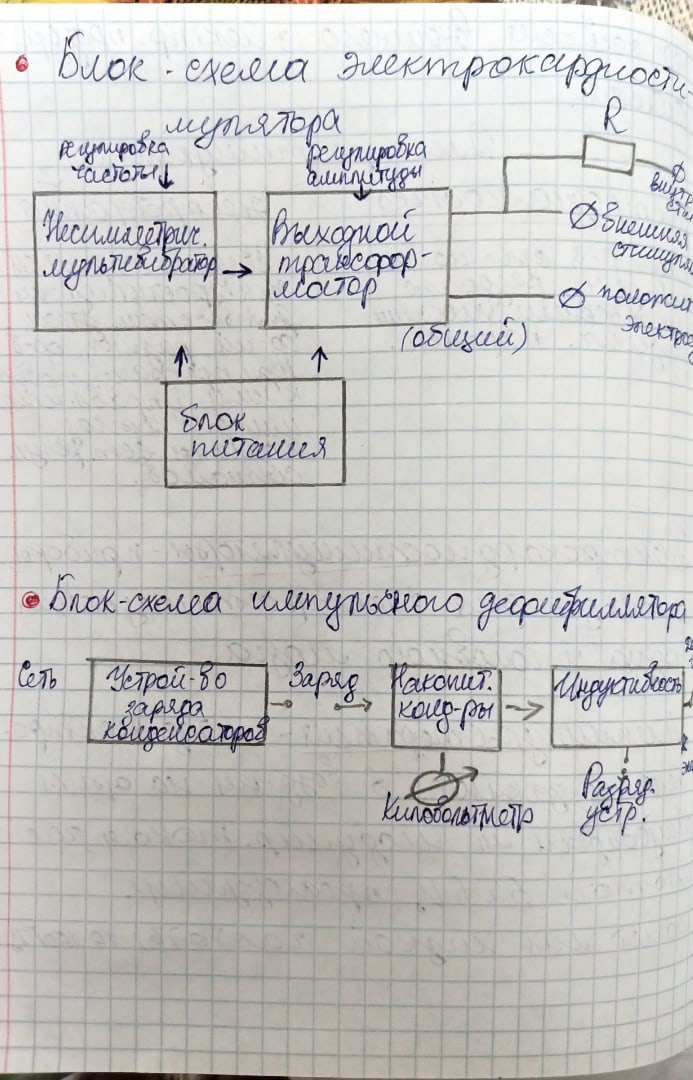 Блок-схема электрокардиости-
мулятора
регулировка
частоты
регулировка
амплитуды
R
Несимметрич.
мультивибратор
Выходной
трансфор-
матор
внешняя
(общий)
блок
питания
Блок-схема импульсного дефибриллятора
Сеть
Устрой-во
заряда
конденсаторов
Заряд
Накопит.
конд-ры
Индуктивность
Киловольтметр
Разряд.
устр.